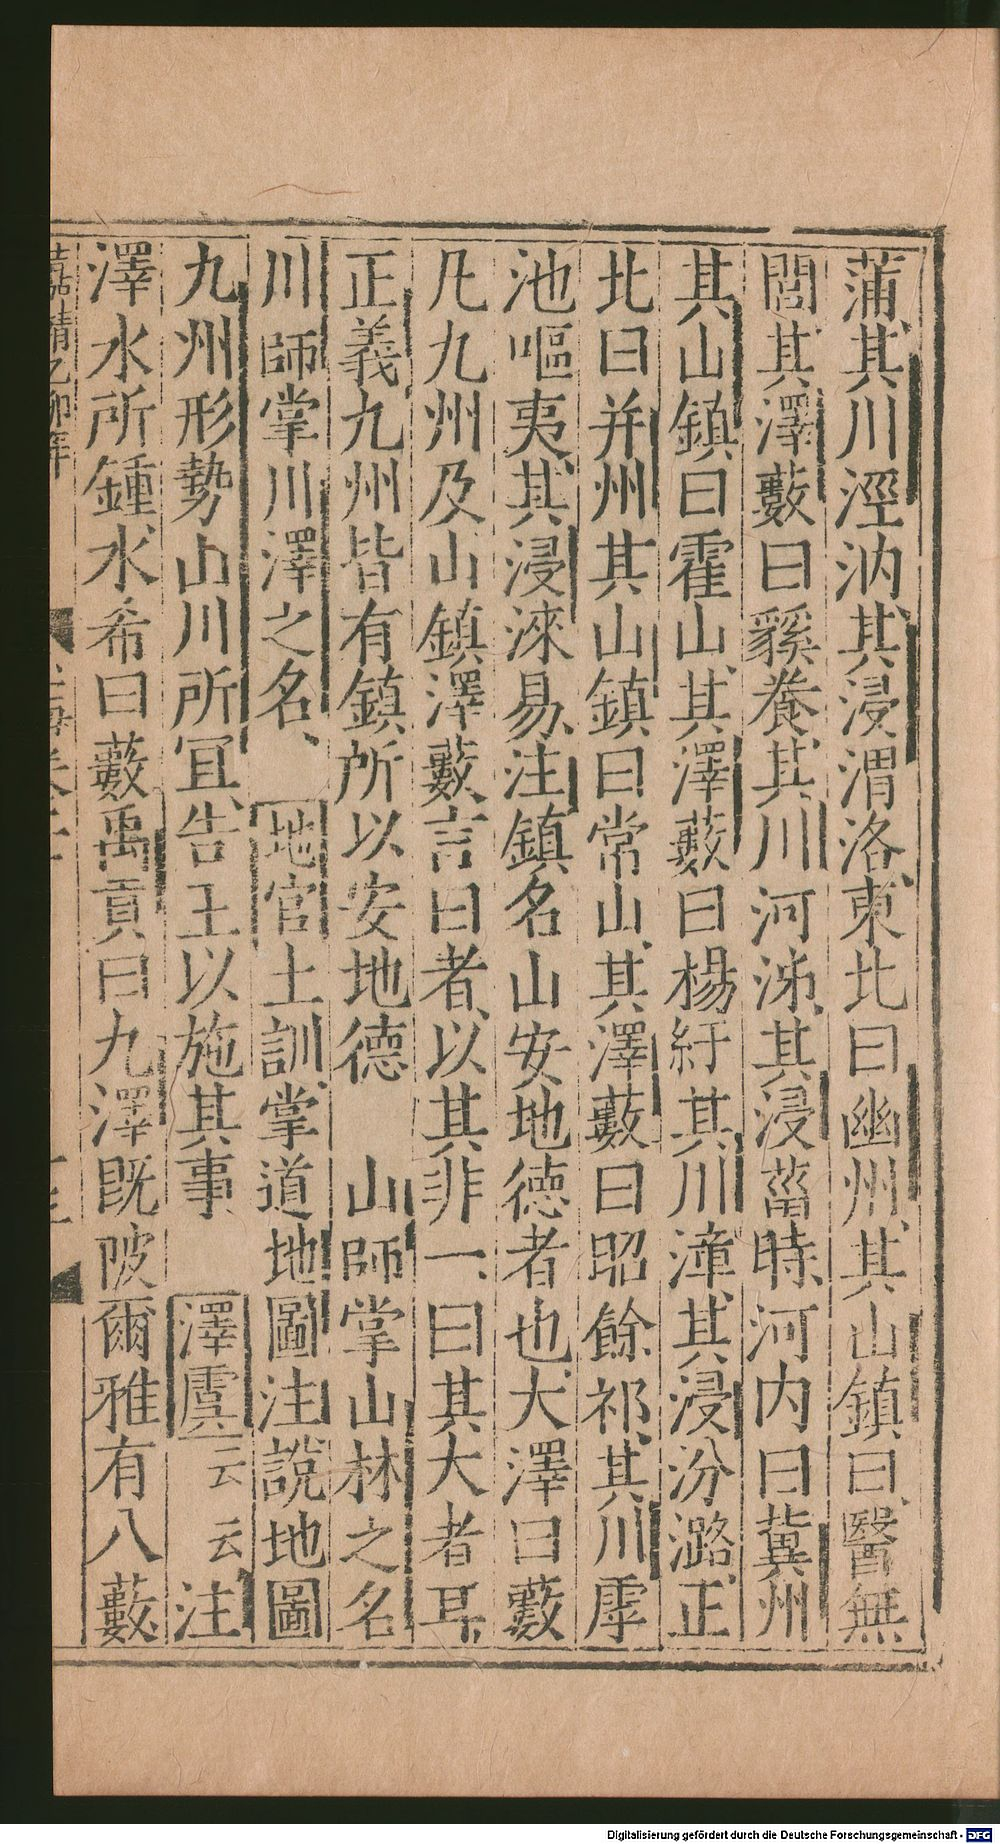 蒲、其川涇汭、其浸渭洛、東北曰幽州、其山鎮曰、醫無
閭、其澤藪曰貕養、其川河泲、其浸菑時、河内曰冀州
其山鎮曰霍山、其澤藪曰楊紆、其川漳、其浸汾潞、正
北曰并州、其山鎮曰常山、其澤藪曰昭餘祁、其川虖
池嘔夷、其浸淶易、注鎮名山安地徳者也、大澤曰藪
凡九州及山鎮澤藪、言曰者、以其非一、曰其大者耳、
正義、九州皆有鎮、所以安地德 山師掌山林之名
川師掌川澤之名、 地官土訓、掌道地圖、注說地圖
九州形勢山川所冝、告王以施其事 澤虞云云、注
澤水所鍾、水希曰藪、禹貢曰九澤既陂、爾雅有八藪
嘉靖乙卯年
Digitalisierung gefördert durch die Deutsche Forschungsgemeinschaft - DFG